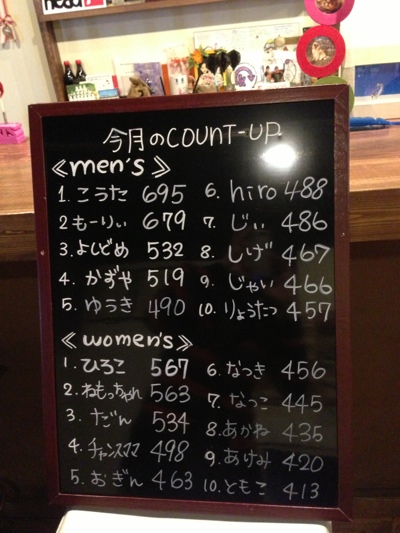 今月のCOUNT-UP
≪men's≫
1. こうた 695
2 もーりぃ 679
3. よしどめ 532
4. かずや 519
5. ゆうき 490
6. hiro 488
7. じぃ 486
8. しげ 467
9. じゃい 466
10. りょうたつ 457
≪women's≫
1. ひろこ 567
2. ねもっちゃん 563
3. だん 534
4. チャンスママ 498
5. おぎん 463
6. なつき 456
7. なつこ 445
8. あかね 435
9. あけみ 420
10. ともこ 413